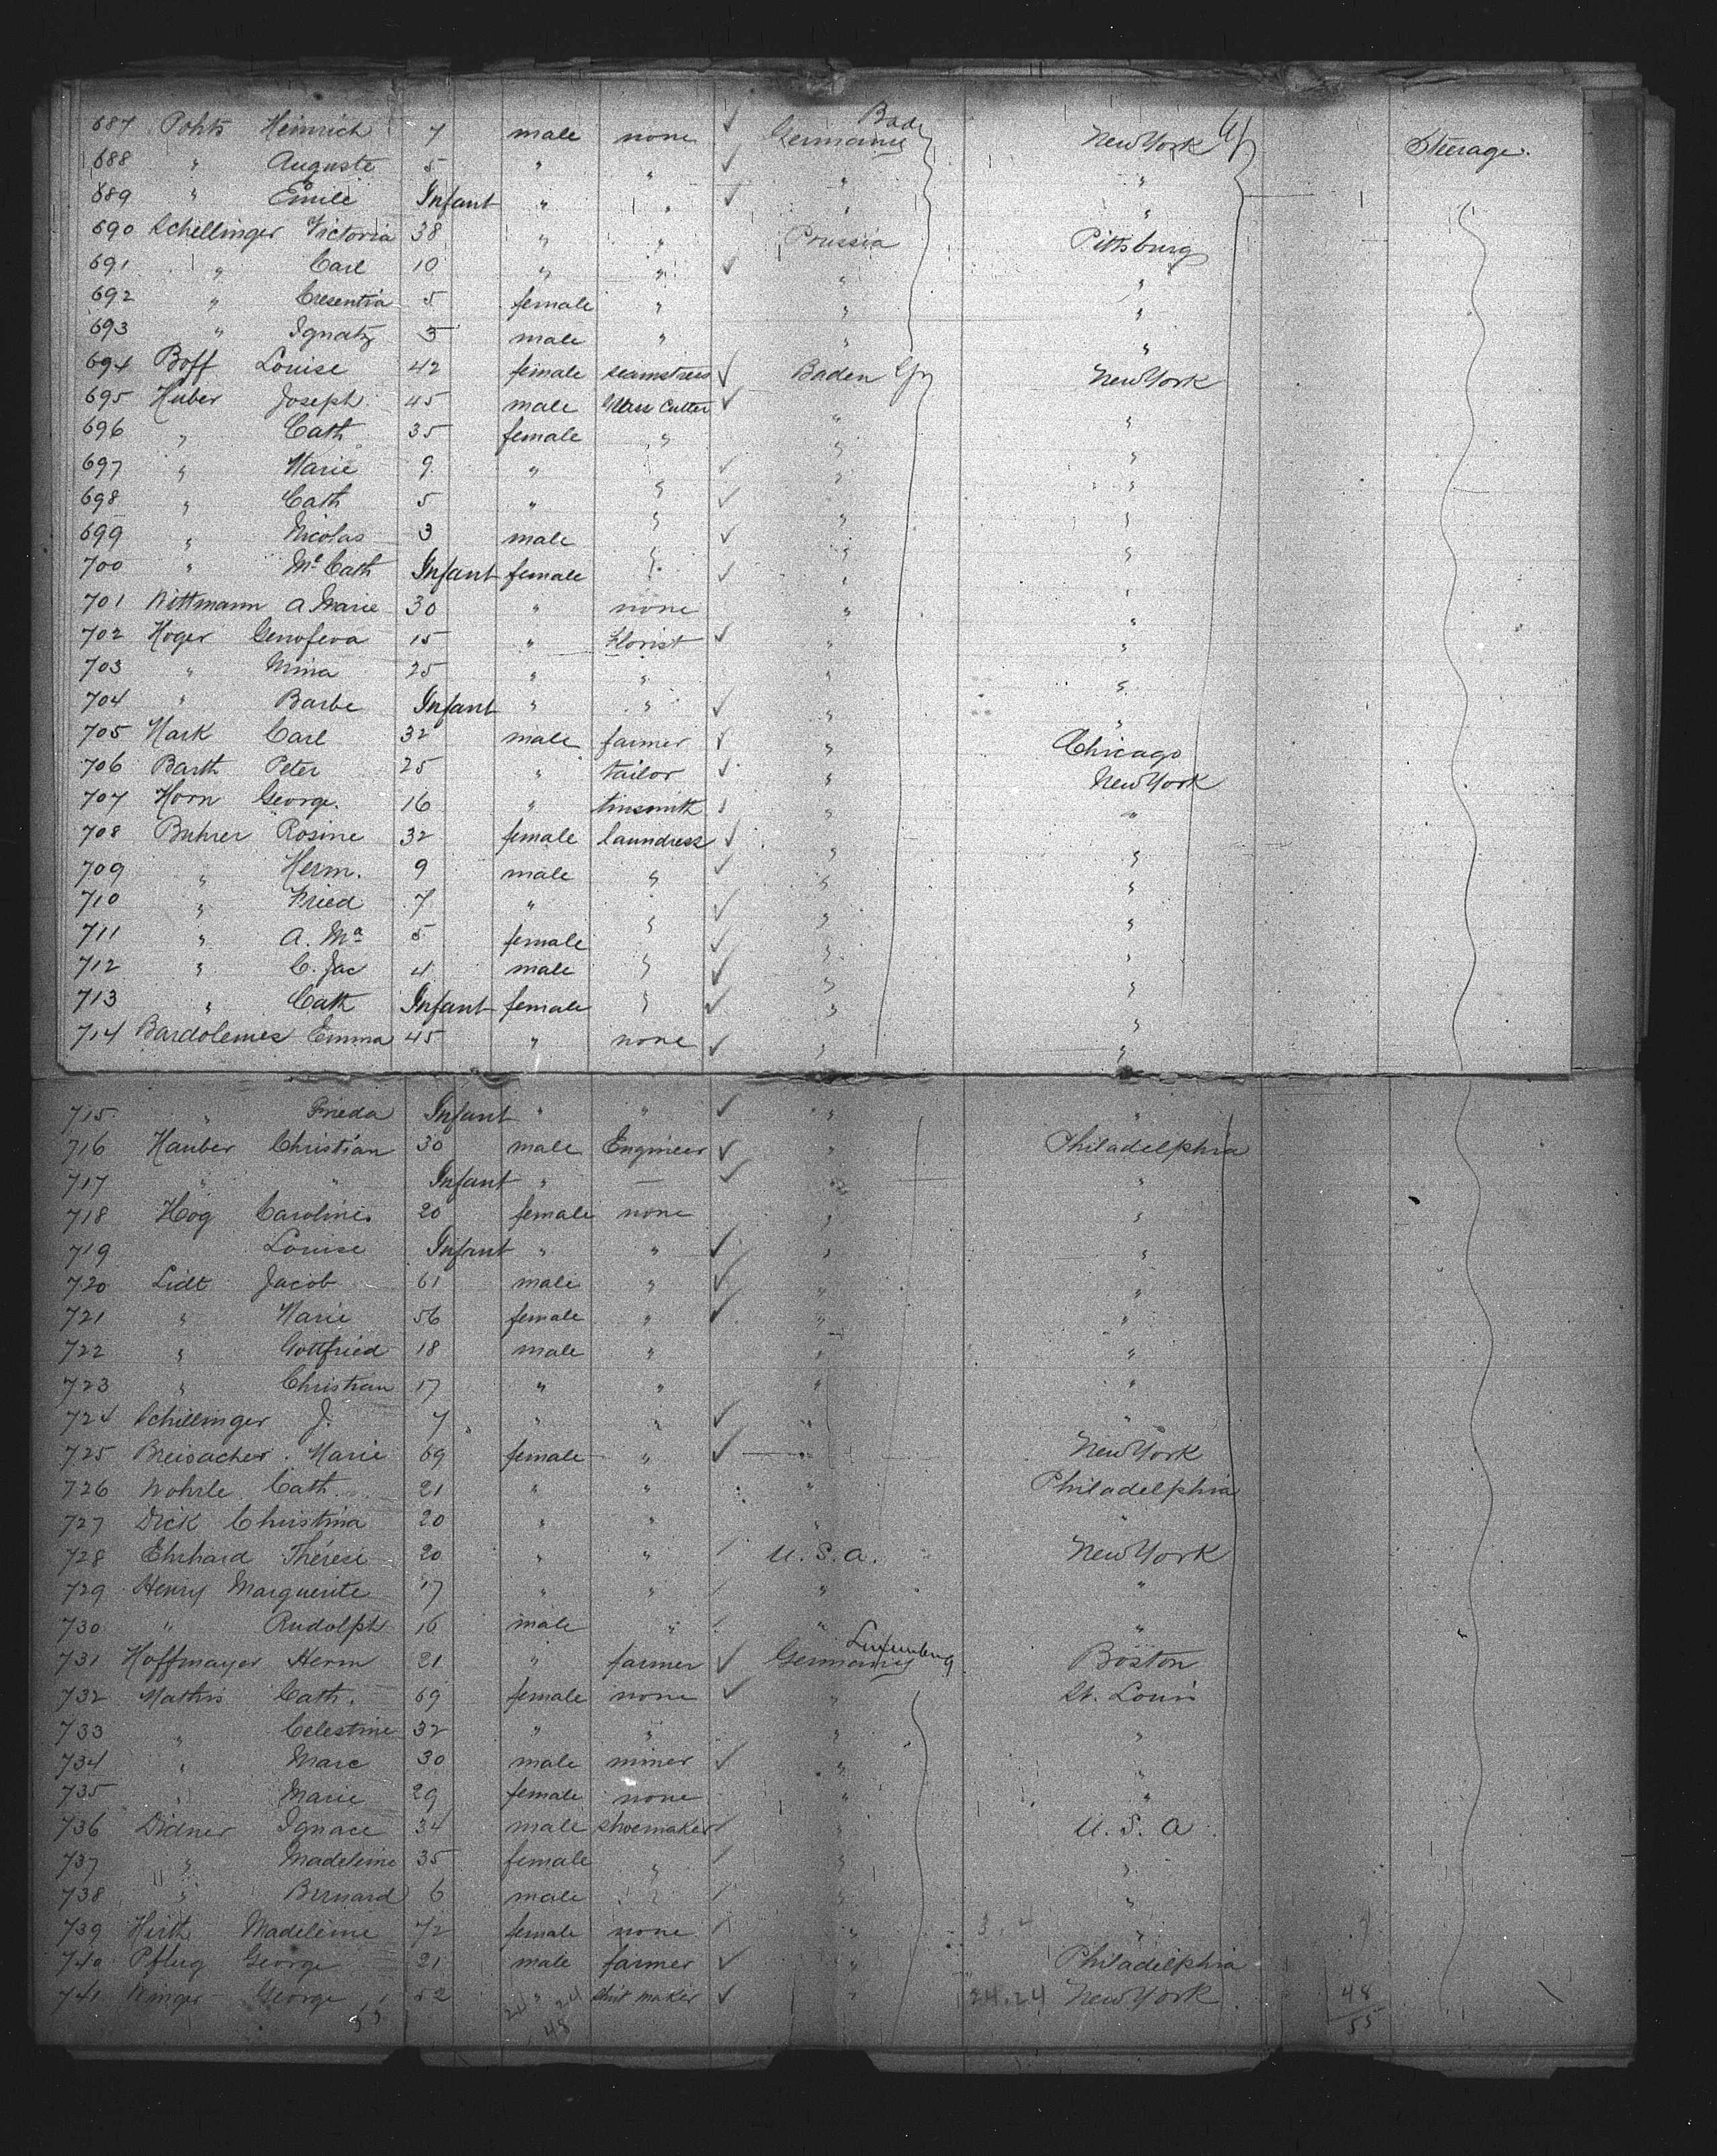 687 Pohts Heinrich 7 male none Germany Bad New York Steerage.
688 " Auguste 5 " " " "
689 " Emile Infant " " " "
690 Schellinger Victoria 38 " " Prussia Pittsburg
691 " Carl 10 " " " "
692 " Cresentia 5 female " " "
693 " Ignatz 3 male " " "
694 Boff Louise 42 female seamstress Baden New York
695 Huber Joseph 45 male Glass Cutter " "
696 " Cath 35 female " " "
697 " Marie 9 " " " "
698 " Cath 5 " " " "
699 " Nicolas 3 male " " "
700 " Me Cath Infant female " " "
701 Wittmann A Marie 30 " none " "
702 Hoger Genofeva 15 " Florist " "
703 " Mina 25 " " " "
704 " Barbe Infant " " " "
705 Mark Carl 32 male farmer " Chicago
706 Barth Peter 25 " tailor " New York
707 Horn George. 16 " tinsmith " "
708 Buhrer Rosine 32 female laundress " "
709 " Herm. 9 male " " "
710 " Fried 7 " " " "
711 " A. Ma 5 female " " "
712 " C. Jac 4 male " " "
713 " Cath Infant female " " "
714 Bardolemes Emma 45 " none " "
715 " Frieda Infant " " " "
716 Hauber Christian 30 male Engineer " Philadelphia
717 " " Infant " — " "
718 Hog Caroline 20 female none " "
719 Louise Infant " " " "
720 Lidt Jacob 61 male " " "
721 " Marie 56 female " " "
722 " Gottfried 18 male " " "
723 " Christian 17 " " " "
724 Schillinger J. 7 " " " "
725 Breisacher Marie 69 female " " New York
726 Wohrle Cath. 21 " " " Philadelphia
727 Dick Christina 20 " " " "
728 Ehrhard Thérese 20 " " U. S. A. New York
729 Henry Marguerite 17 " " " "
730 " Rudolph 16 male " " "
731 Hoffmayer Herm 21 " farmer Germany Luxemburg Boston
732 Mathis Cath. 69 female none " St. Louis
733 " Celestine 32 " " " "
734 " Marc 30 male miner " "
735 " Marie 29 female none " "
736 Didner Ignace 34 male shoemaker " U. S. A.
737 " Madeleine 35 female " " "
738 " Bernard 6 male " " "
739 Hirth Madeleine 72 female none " "
740 Pflug George 21 male farmer " Philadelphia
741 Winger George 52 " shirt maker " 24.24 New York 48
24 24 48 55